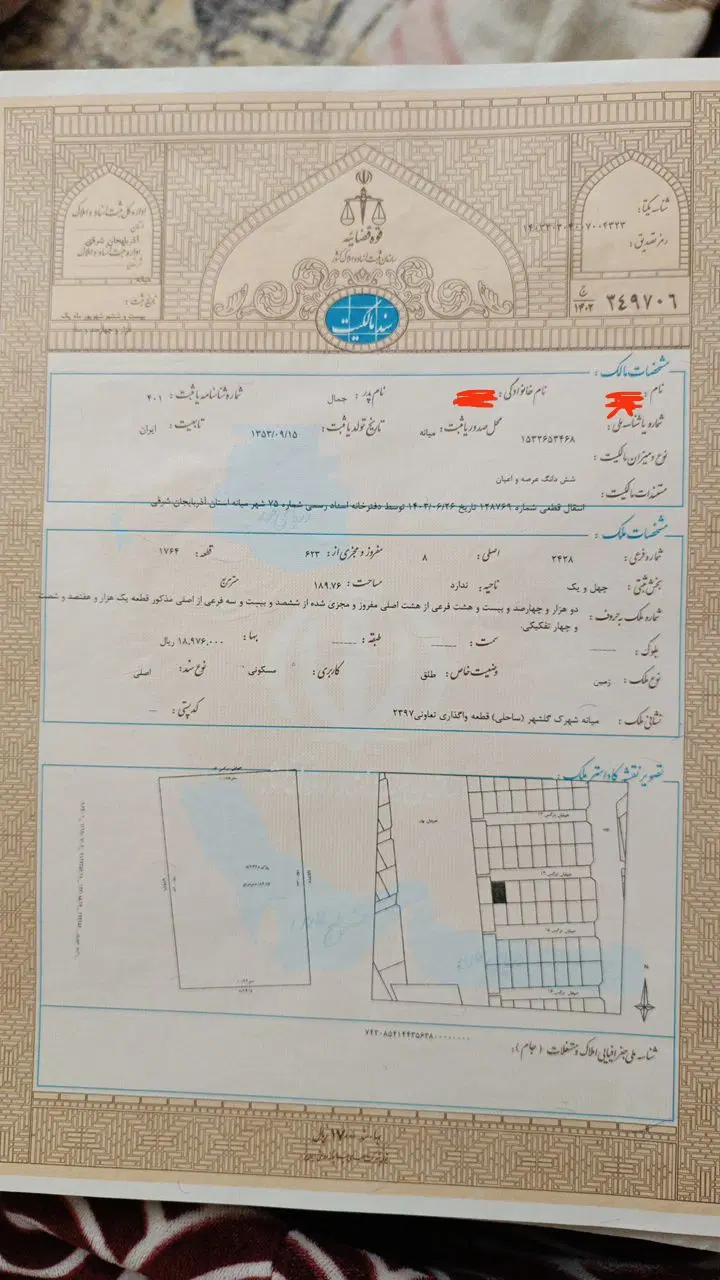 اداره کل ثبت اسناد و املاک
استان
آذربایجان شرقی
اداره ثبت اسناد و املاک
میانه
تاریخ ثبت :
بیست و ششم شهریور ماه یک
هزار و چهارصد و
قوه قضائیه
سازمان ثبت اسناد و املاک کشور
سند مالکیت
شناسه یکتا :
رمز تصدیق :
ج
۱۴۰۲
۳۴۹۷۰۶
مشخصات مالک :
نام : نام خانوادگی : نام پدر : جمال شماره شناسنامه یا ثبت : ۴۰۱
شماره یا شناسه ملی : ۱۵۳۲۶۵۳۴۶۸ محل صدور یا ثبت : میانه تاریخ تولد یا ثبت : ۱۳۵۳/۰۹/۱۵ تابعیت : ایران
نوع و میزان مالکیت : شش دانگ عرصه و اعیان
مستندات مالکیت : انتقال قطعی شماره ۱۲۸۷۶۹ تاریخ ۱۴۰۳/۰۶/۲۶ توسط دفترخانه اسناد رسمی شماره ۷۵ شهر میانه استان آذربایجان شرقی
مشخصات ملک :
شماره فرعی : ۲۴۲۸ اصلی : ۸ مفروز و مجزی از : ۶۲۳ قطعه : ۱۷۶۴
بخش ثبتی : چهل و یک ناحیه : ندارد مساحت : ۱۸۹.۷۶ مترمربع
شماره ملک به حروف : دو هزار و چهارصد و بیست و هشت فرعی از هشت اصلی مفروز و مجزی شده از ششصد و بیست و سه فرعی از اصلی مذکور قطعه یک هزار و هفتصد و شصت
و چهار تفکیکی.
بلوک : سمت : طبقه : بها : ۱۸,۹۷۶,۰۰۰ ریال
نوع ملک : زمین وضعیت خاص : طلق کاربری : مسکونی نوع سند : اصلی
نشانی ملک : میانه شهرک گلشهر (ساحلی) قطعه واگذاری تعاونی ۲۳۹۷ کدپستی :
تصویر نقشه کاداستر ملک :
N
شناسه ملی جغرافیایی املاک و مستغلات (جام) :